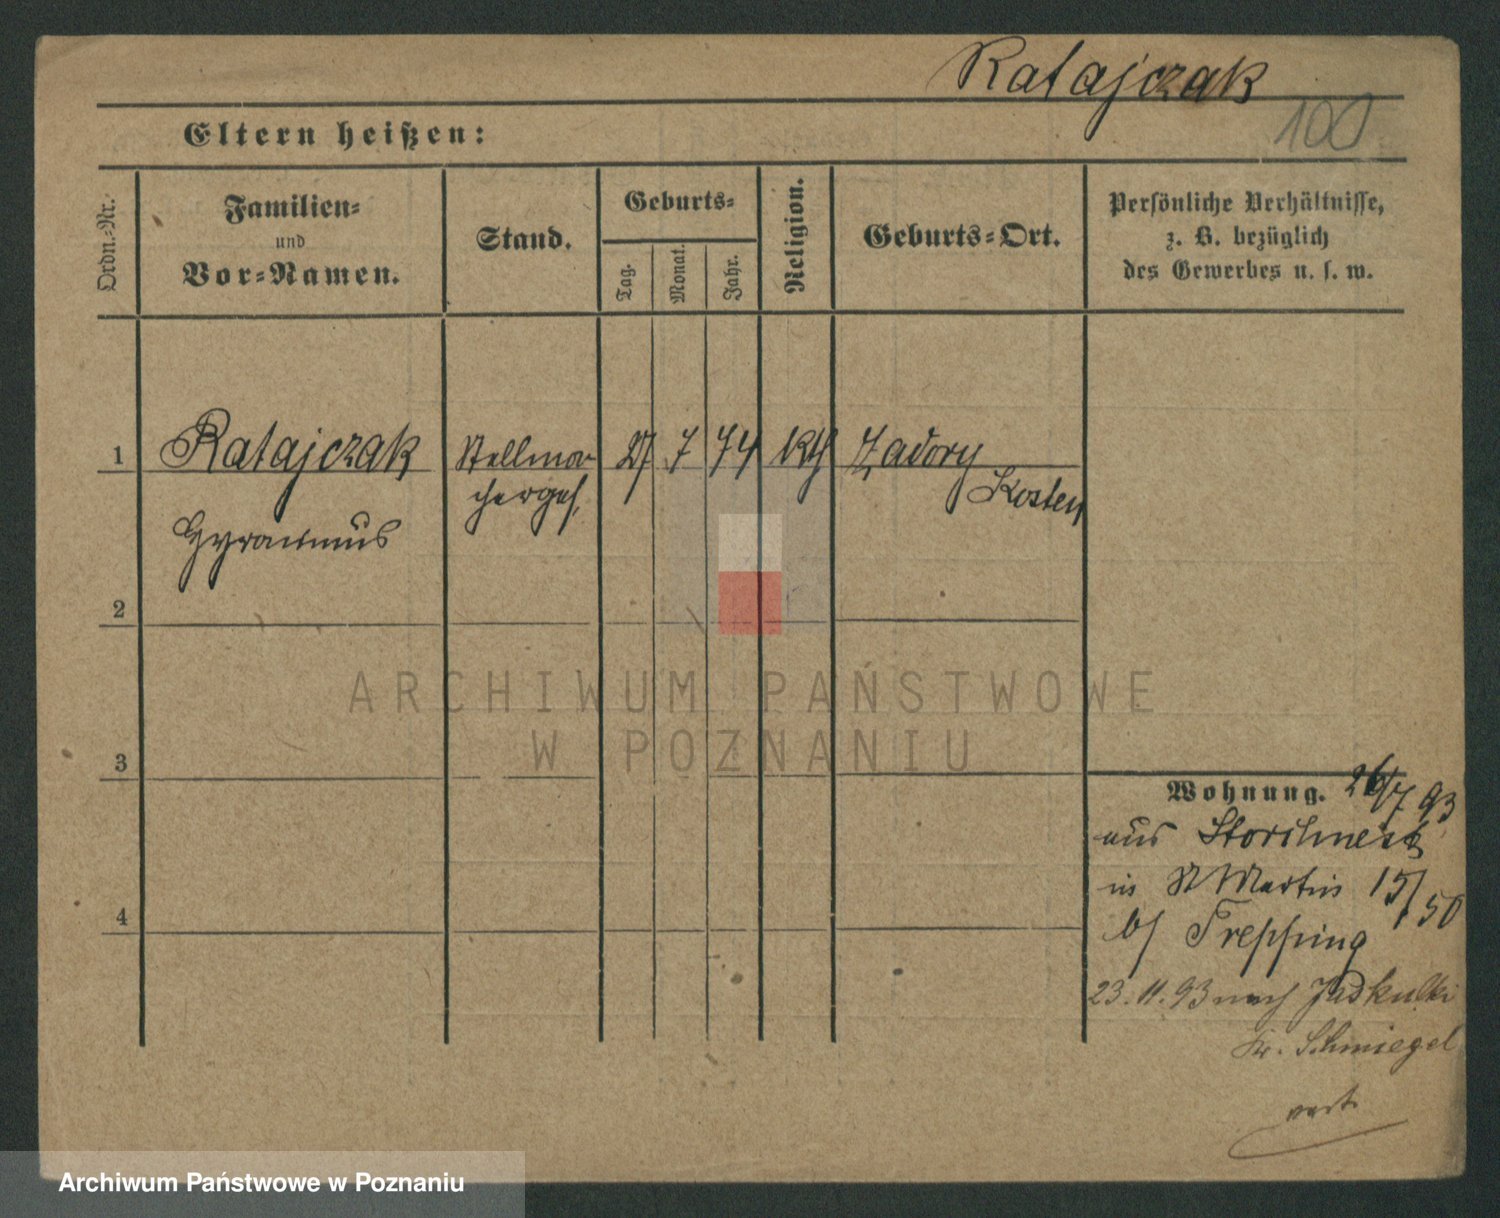 Ratajczak
100
Eltern heißen:
Ordn.-Nr.
Familien-
und
Vor-Namen.
Stand.
Geburts-
Tag.
Monat.
Jahr.
Religion.
Geburts-Ort.
Persönliche Verhältnisse,
z. B. bezüglich
des Gewerbes u. s. w.
1
Ratajczak
Stellma-
cherges.
27
7
74
kth
Zadory
Kosten
2
3
4
Wohnung. 26/7 93
aus Storchnest
in St Martin 15/50
b/
23.11.93 nach Jaskulki
Kr. Schmiegel
ARCHIWUM PAŃSTWOWE
W POZNANIU
Archiwum Państwowe w Poznaniu